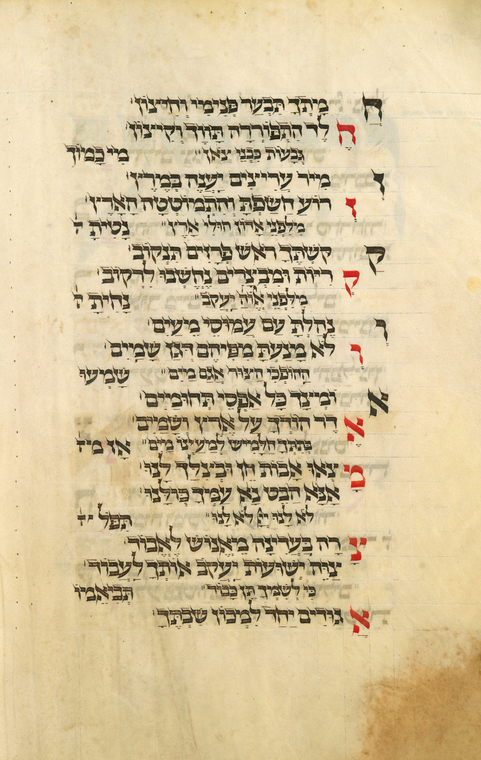 ח מתך תבער פנימי וחיצון
ה לך התפוררה תחד וקיצון
גבעות כבני צאן מי כמוך
ז מיר עריצים יענה במרץ
ז רוע חשפת והתמוטטה הארץ
מלפני אדון חולי ארץ נטית י
ק קשתך ראש פרזים תנקוב
ק ריות ומבצרים נחשבו לרקוב
מלפני אלוה יעקב נחית ל
נחלת עם עמוסי מעים
לא מנעת מפיהם דגן שמים
ההופכי הצור אגם מים שמעו
א כל אפסי תחומיים
א דר הודך על ארץ ושמים
חלמיש למעינו מים אז
מ צאו אבות חן ובצלך לנו
אנא הבט נא עמך כולנו
לא לנו יי לא לנו תפל
צ רה מאנוש
צוה ישועות יעקב אותך לעבוד
כי לשמך תן כבוד תביאמו
א גורים יחד למכון שבתך